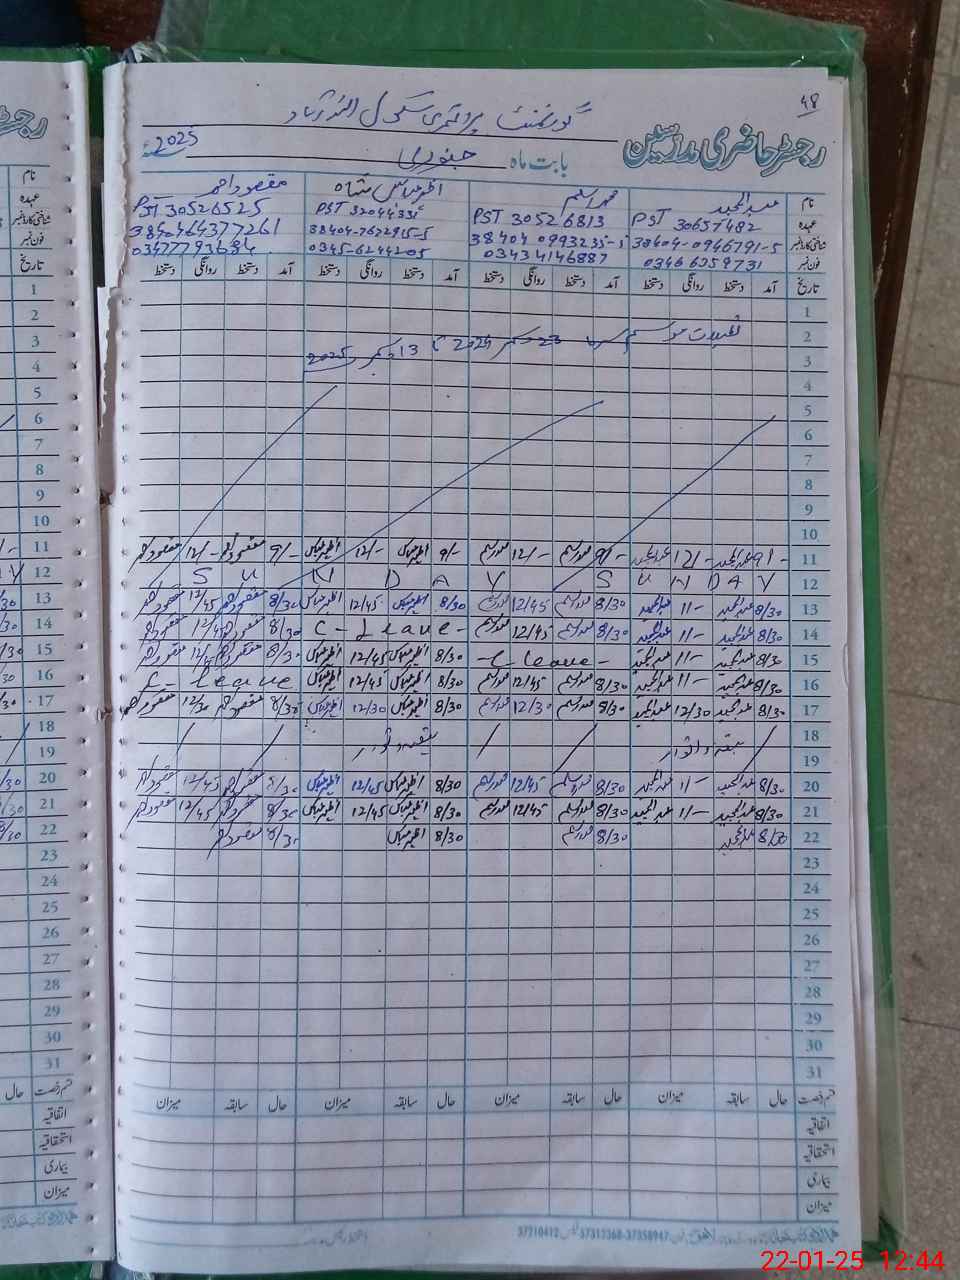 48
گورنمنٹ پرائمری سکول
رجسٹر حاضری مدرسین
بابت ماہ جنوری 2025
نام عبدالمجید محمد اسلم اظہر عباس شاہ مقصود احمد
عہدہ PST 30657482 PST 30526813 PST 32044331 PST 30526525
شناختی کارڈ نمبر 38404-0946791-5 38404 0993235-5 38404-7622915-5 3840464377261
فون نمبر 0346 6359731 03434146887 0345-6244205 03477793684
تاریخ آمد دستخط روانگی دستخط آمد دستخط روانگی دستخط آمد دستخط روانگی دستخط آمد دستخط روانگی دستخط
1
2 تعطیلات موسم سرما 23 دسمبر 2024 تا
3 13 دسمبر 2025
4
5
6
7
8
9
10
11 9/- عبدالمجید 12/- عبدالمجید 9/- محمد اسلم 12/- محمد اسلم 9/- اظہر عباس 12/- اظہر عباس 9/- مقصود احمد 12/- مقصود احمد
12 S U N D A Y S U N D A Y
13 8/30 عبدالمجید 11/- عبدالمجید 8/30 محمد اسلم 12/45 محمد اسلم 8/30 اظہر عباس 12/45 اظہر عباس 8/30 مقصود احمد 12/45 مقصود احمد
14 8/30 عبدالمجید 11/- عبدالمجید 8/30 محمد اسلم 12/45 محمد اسلم C - Leave - 8/30 مقصود احمد 12/45 مقصود احمد
15 8/30 عبدالمجید 11/- عبدالمجید - C leave - 8/30 اظہر عباس 12/45 اظہر عباس 8/30 مقصود احمد 12/45 مقصود احمد
16 8/30 عبدالمجید 11/- عبدالمجید 8/30 محمد اسلم 12/45 محمد اسلم 8/30 اظہر عباس 12/45 اظہر عباس C - leave
17 8/30 عبدالمجید 12/30 عبدالمجید 8/30 محمد اسلم 12/30 محمد اسلم 8/30 اظہر عباس 12/30 اظہر عباس 8/30 مقصود احمد 12/30 مقصود احمد
18 ہفتہ و اتوار ہفتہ و اتوار
19
20 8/30 عبدالمجید 11/- عبدالمجید 8/30 محمد اسلم 12/45 محمد اسلم 8/30 اظہر عباس 12/45 اظہر عباس 8/30 مقصود احمد 12/45 مقصود احمد
21 8/30 عبدالمجید 11/- عبدالمجید 8/30 محمد اسلم 12/45 محمد اسلم 8/30 اظہر عباس 12/45 اظہر عباس 8/30 مقصود احمد 12/45 مقصود احمد
22 8/30 عبدالمجید 8/30 محمد اسلم 8/30 اظہر عباس 8/30 مقصود احمد
23
24
25
26
27
28
29
30
31
قسم رخصت حال سابقہ میزان حال سابقہ میزان حال سابقہ میزان حال سابقہ میزان
اتفاقیہ
استحقاقیہ
بیماری
میزان
37210412 37313368-37358947
22-01-25 12:44